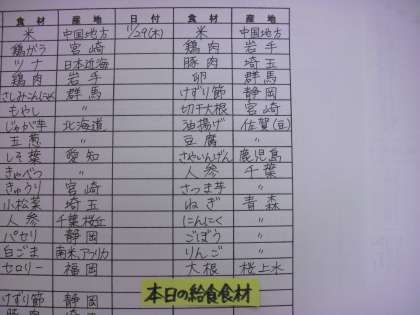 食材 産地 日付 食材 産地
米 中国地方 11/29(木) 米 中国地方
鶏がら 宮崎 鶏肉 岩手
ツナ 日本近海 豚肉 埼玉
鶏肉 岩手 卵 群馬
さしみこんにゃく 群馬 けずり節 静岡
もやし 〃 切干大根 宮崎
じゃが芋 北海道 油揚げ 佐賀(豆)
玉葱 〃 豆腐 〃
しそ葉 愛知 さやいんげん 鹿児島
きゃべつ 〃 人参 千葉
きゅうり 宮崎 さつま芋 〃
小松菜 埼玉 ねぎ 青森
人参 千葉 にんにく 〃
パセリ 静岡 ごぼう 〃
白ごま 南米、アフリカ りんご 〃
セロリー 福岡 大根 桜上水
本日の給食食材
けずり節 静岡
豚肉 埼玉